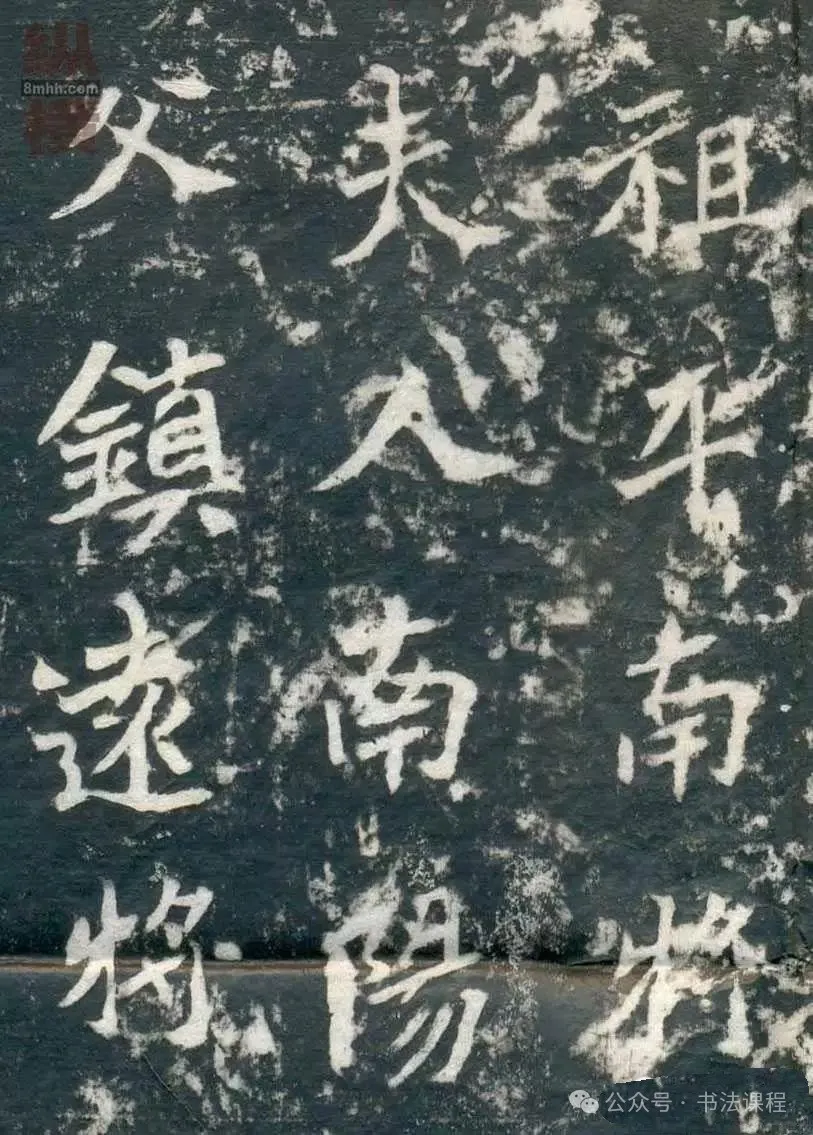 祖平南將
夫人南陽
父鎮遠將
8mhh.com
公众号·书法课程